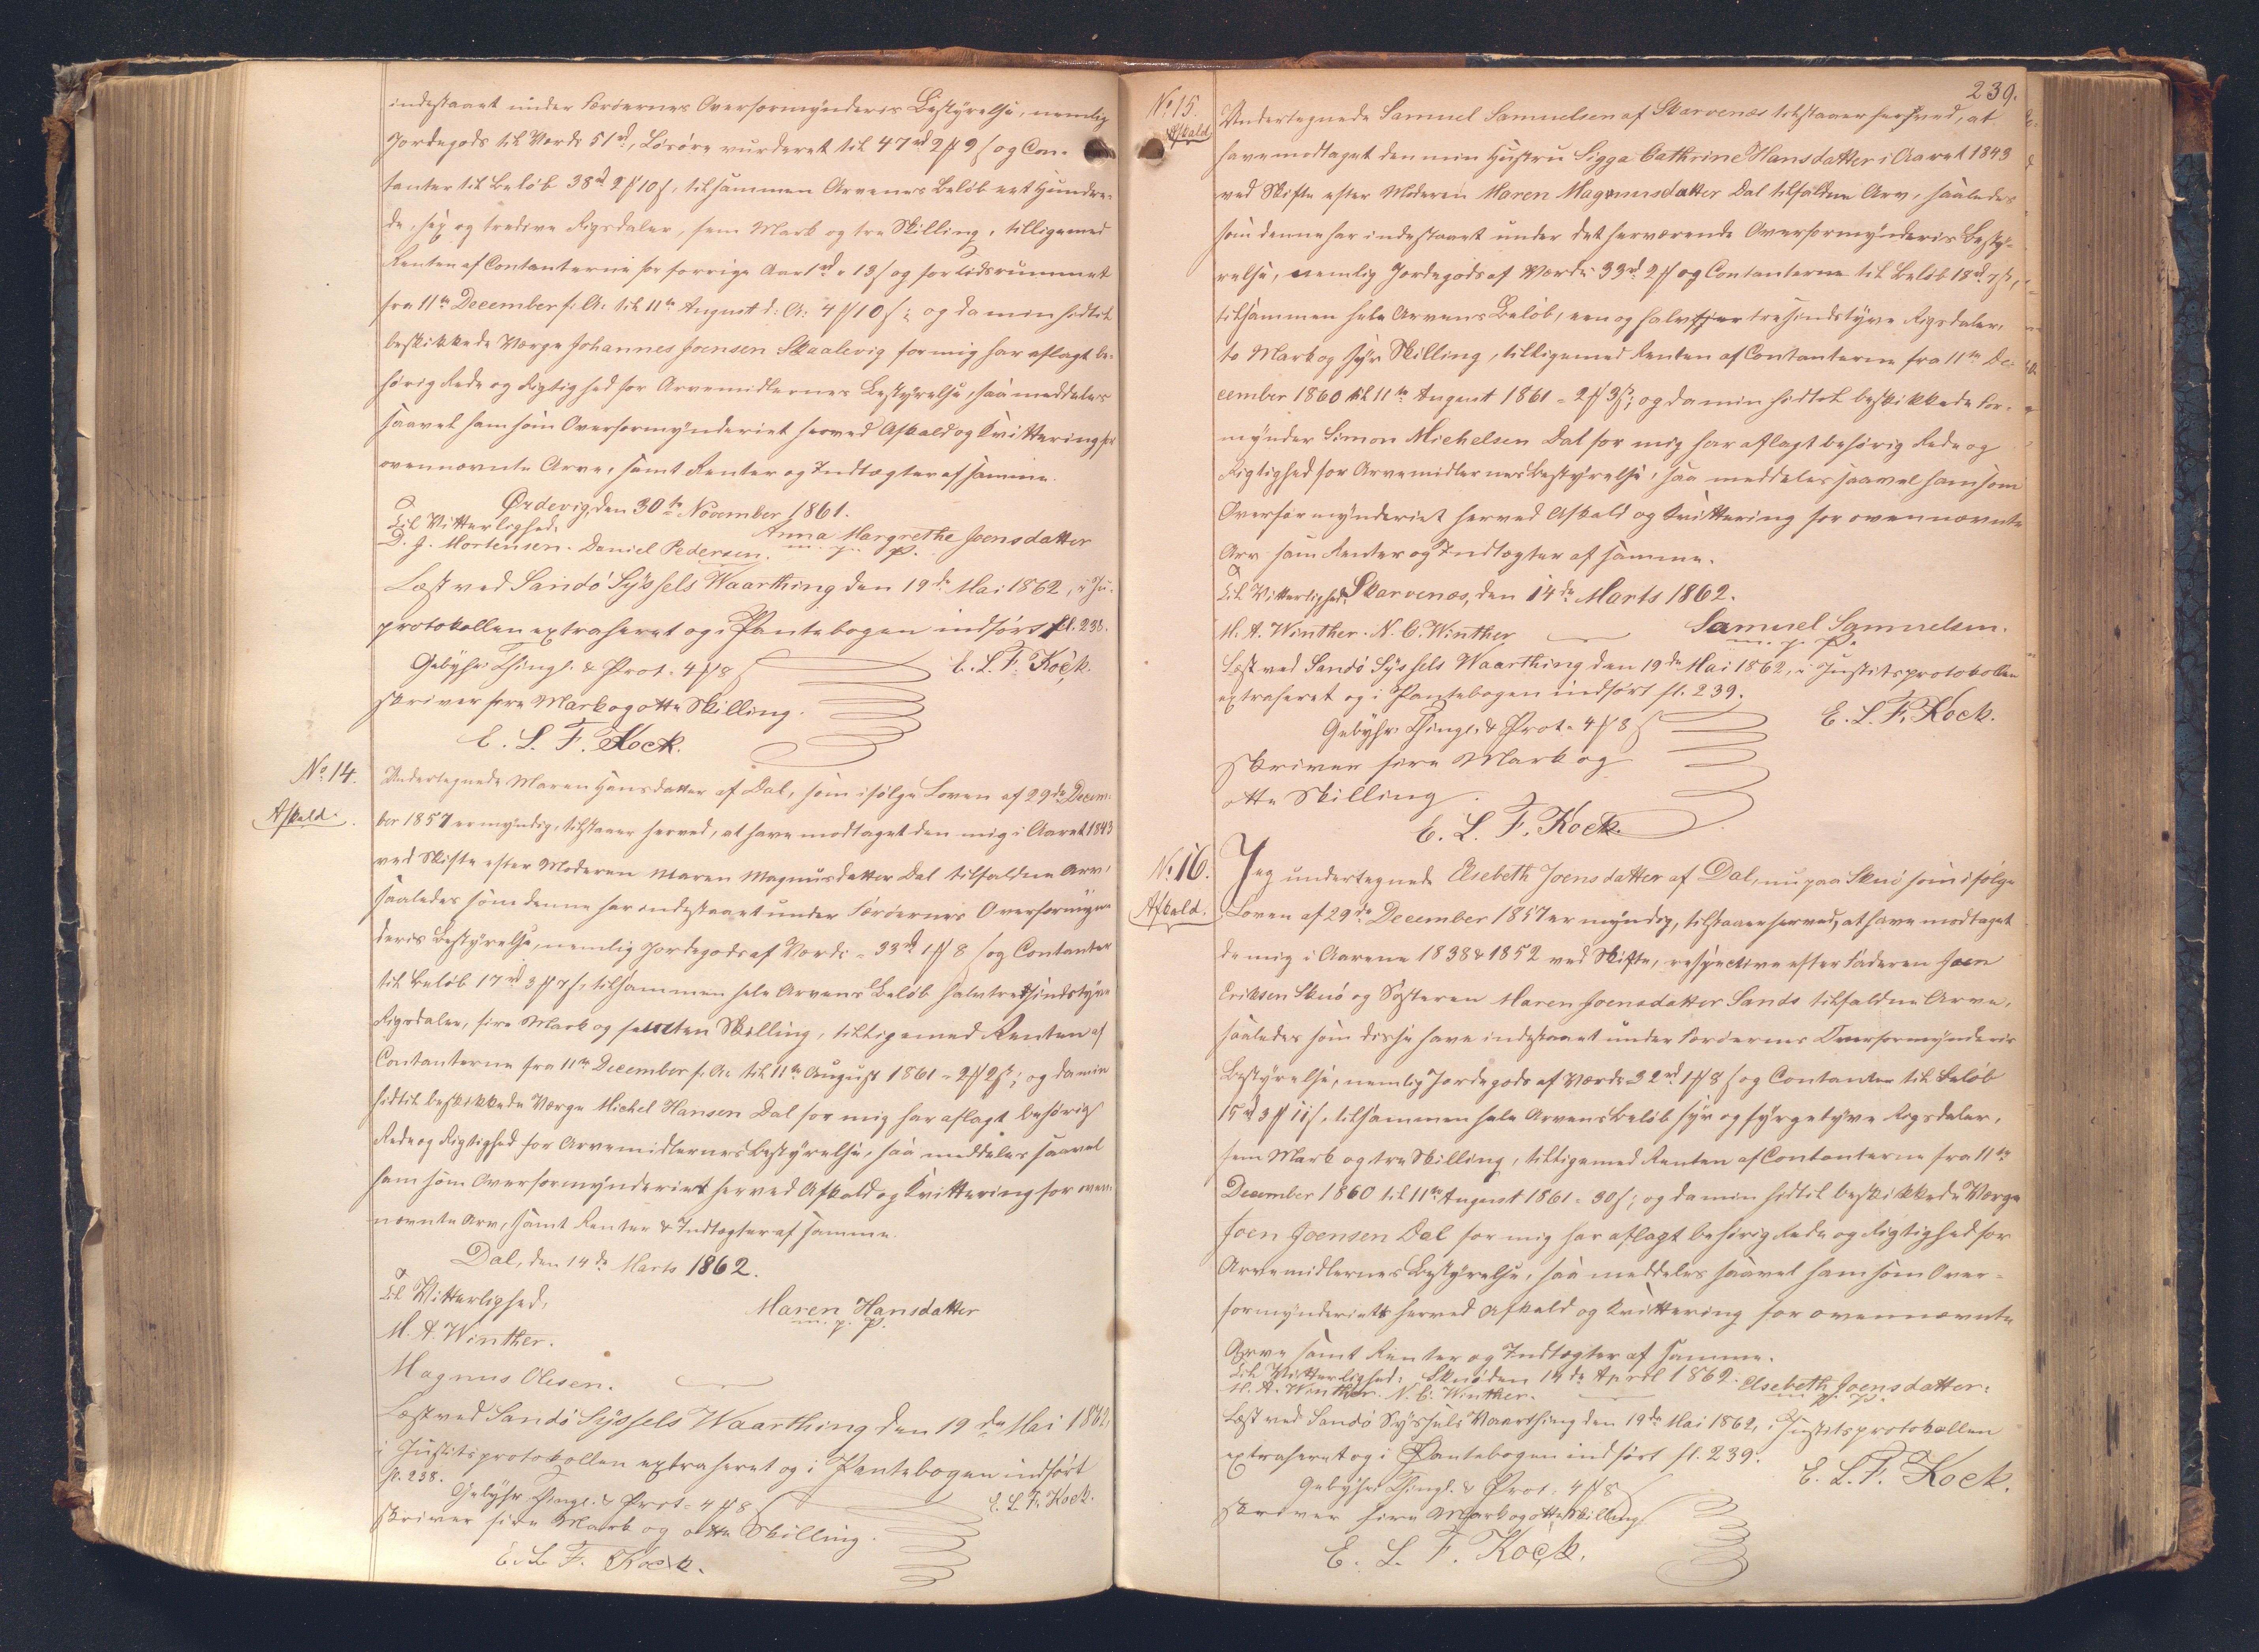 indestaaet under Færøernes Overformynderis Bestyrelse, nemlig
Jordegods til Værdi 51rd, Løsøre vurderet til 47rd 2ℳ 9ß og Con-
tanter til Beløb 38rd 9ß 10ß, tilsammen Arvenes Beløb eet Hundre-
de, sex og tredive Rigsdaler, fem Mark og tre Skilling, tilligemed
Renten af Contanterne for forrige Aar 1rd " 13ß og for Tidsrummet
fra 11te December f: A: til 11te August d: A: 4ℳ 10ß; og da min hidtil
beskikkede Værge Johannes Joensen Skaalevig for mig har aflagt be-
hørig Rede og Rigtighed for Arvemidlernes Bestyrelse, saa meddeles
saavel ham som Overformynderiet herved Afkald og Kvittering for
ovennævnte Arve, samt Renter og Indtægter af samme.
Ørdevig, den 30te November 1861.
Til Vitterlighed:
Anna Margrethe Joensdatter
D. J. Mortensen. Daniel Pedersen. m. f. P.
Læst ved Sandø Syssels Vaarthing den 19de Mai 1862, i Ju-
protokollen extraheret og i Pantebogen indført fl. 238.
Gebyhr: Thingl. & Prot. 4ℳ 8ß
E. L. F. Kock.
skriver fire Mark og otte Skilling.
E. L. F. Kock.
No 14.
Afkald.
Undertegnede Maren Hansdatter af Dal, som ifølge Loven af 29de Decem-
ber 1857 er myndig, tilstaaer herved, at have modtaget den mig i Aaret 1843
ved Skifte efter Moderen Maren Magnusdatter Dal tilfaldne Arv,
saaledes som denne har indestaaet under Færøernes Overformyn-
deris Bestyrelse, nemlig Jordegods af Værdi = 33rd 1ℳ 8ß og Contanter
til Beløb 17rd 3ℳ 7ß, tilsammen hele Arvens Beløb halvtresindstyve
Rigsdaler, fire Mark og femten Skilling, tilligemed Renten af
Contanterne fra 11te December f: A: til 11te August 1861 = 2ℳ 2ß; og da min
hidtil beskikkede Værge Michel Hansen Dal for mig har aflagt behørig
Rede og Rigtighed for Arvemidlernes Bestyrelse, saa meddeles saavel
ham som Overformynderiet herved Afkald og Kvittering for oven-
nævnte Arv, samt Renter & Indtægter af samme.
Dal, den 14de Marts 1862.
Til Vitterlighed:
Maren Hansdatter
m. f. P.
M. A. Winther.
Magnus Olesen.
Læst ved Sandø Syssels Vaarthing den 19de Mai 1862,
i Justitsprotokollen extraheret og i Pantebogen indført
fl. 238.
Gebyhr Thingl. & Prot. 4ℳ 8ß
E. L. F. Kock.
skriver fire Mark og otte Skilling.
E. L. F. Kock.
239.
No 15.
Afkald
Undertegnede Samuel Samuelsen af Skarvenæs tilstaaer herved, at
have modtaget den min Hustru Sigga Cathrine Hansdatter i Aaret 1843
ved Skifte efter Moderen Maren Magnusdatter Dal tilfaldne Arv, saaledes
som denne har indestaaet under det herværende Overformynderis Besty-
relse, nemlig Jordegods af Værdi 33rd 2ℳ og Contanterne til Beløb 18rd 7ß,
tilsammen hele Arvens Beløb, een og halvtresindstyve Rigsdaler,
to Mark og syv Skilling, tilligemed Renten af Contanterne fra 11te De-
cember 1860 til 11te August 1861 = 2ℳ 3ß; og da min hidtil beskikkede For-
mynder Simon Michelsen Dal for mig har aflagt behørig Rede og
Rigtighed for Arvemidlernes Bestyrelse, saa meddeles saavel ham som
Overformynderiet herved Afkald og Kvittering for ovennævnte
Arv som Renter og Indtægter af samme.
Til Vitterlighed: Skarvenæs, den 14de Marts 1862.
M. A. Winther. N. C. Winther
Samuel Samuelsen.
m. f. P.
Læst ved Sandø Syssels Vaarthing den 19de Mai 1862, i Justitsprotokollen
extraheret og i Pantebogen indført fl. 239.
Gebyhr: Thingl. & Prot. 4ℳ 8ß
E. L. F. Kock.
skriver fire Mark og
otte Skilling.
E. L. F. Kock.
No 16.
Afkald.
Jeg undertegnede Elsebeth Joensdatter af Dal, nu paa Skuø som ifølge
Loven af 29de December 1857 er myndig, tilstaaer herved, at have modtaget
de mig i Aarene 1838 & 1852 ved Skifte, respective efter Faderen Joen
Eriksen Skuø og Søsteren Maren Joensdatter Sands tilfaldne Arve,
saaledes som disse have indestaaet under Færøernes Overformynderis
Bestyrelse, nemlig Jordegods af Værdi 32rd 1ℳ 8ß og Contanter til Beløb
15rd 3ℳ 11ß, tilsammen hele Arvens Beløb syv og fyrgetyve Rigsdaler,
fem Mark og tre Skilling, tilligemed Renten af Contanterne fra 11te
December 1860 til 11te August 1861 = 30ß; og da min hidtil beskikkede Værge
Joen Joensen Dal for mig har aflagt behørig Rede og Rigtighed for
Arvemidlernes Bestyrelse, saa meddeles saavel ham som Over-
formynderiet herved Afkald og Kvittering for ovennævnte
Arve samt Renter og Indtægter af samme.
Til Vitterlighed: Skuø den 14de April 1862. Elsebeth Joensdatter.
M. A. Winther. N. C. Winther. m. f. P.
Læst ved Sandø Syssels Vaarthing den 19de Mai 1862, i Justitsprotokollen
extraheret og i Pantebogen indført fl. 239.
Gebyhr: Thingl. & Prot. 4ℳ 8ß
E. L. F. Kock.
skriver fire Mark og otte Skilling
E. L. F. Kock.